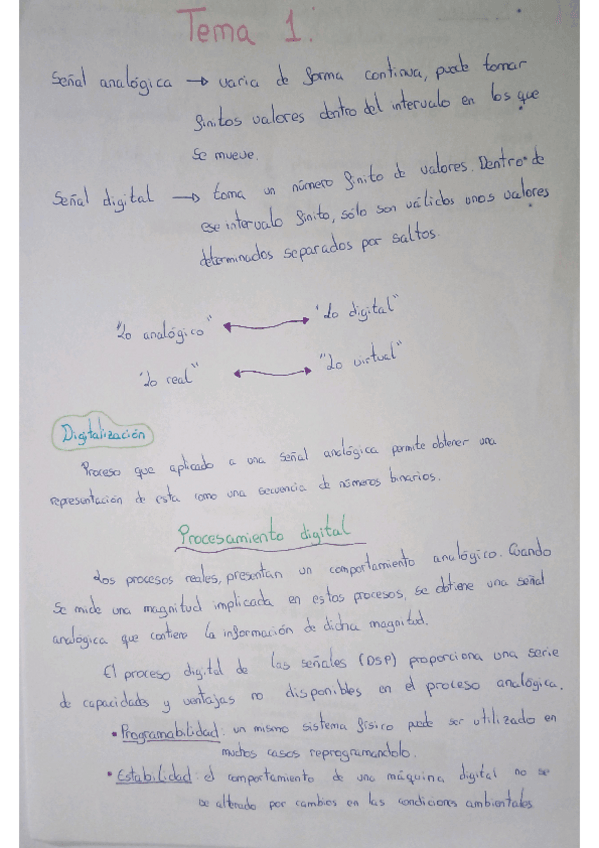 Tema 1.
Señal analógica → varia de forma continua, puede tomar
finitos valores dentro del intervalo en los que
se mueve.
Señal digital → toma un número finito de valores. Dentro de
ese intervalo finito, sólo son válidos unos valores
determinados separados por saltos.
"Lo analógico" ↔ "Lo digital"
"Lo real" ↔ "Lo virtual"
Digitalización
Proceso que aplicado a una señal analógica permite obtener una
representación de esta como una secuencia de números binarios.
Procesamiento digital
Los procesos reales, presentan un comportamiento analógico. Cuando
se mide una magnitud implicada en estos procesos, se obtiene una señal
analógica que contiene la información de dicha magnitud.
El proceso digital de las señales (DSP) proporciona una serie
de capacidades y ventajas no disponibles en el proceso analógica.
• Programabilidad: un mismo sistema físico puede ser utilizado en
muchos casos reprogramandolo.
• Estabilidad: el comportamiento de una máquina digital no se
ve alterado por cambios en las condiciones ambientales.